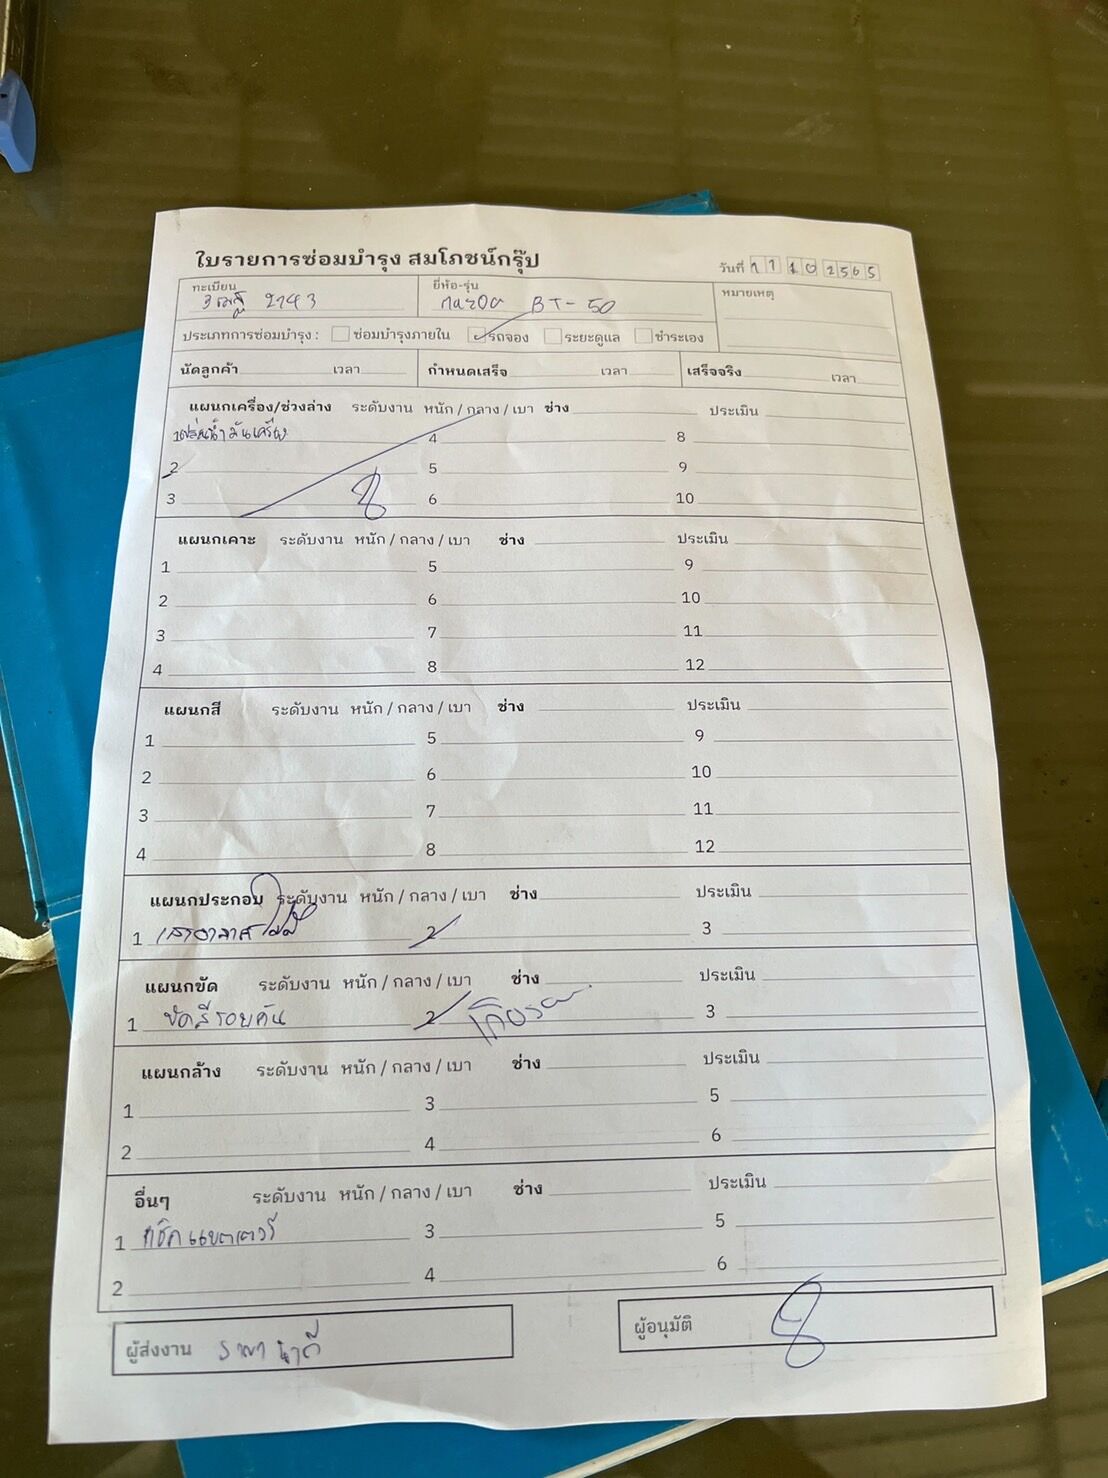 ใบรายการซ่อมบำรุง สมโภชน์กรุ๊ป
วันที่ 11 10 2565
ทะเบียน 2143
ยี่ห้อ-รุ่น mazda BT-50
หมายเหตุ
ประเภทการซ่อมบำรุง : ซ่อมบำรุงภายใน รถจอง ระยะดูแล ชำระเอง
นัดลูกค้า เวลา กำหนดเสร็จ เวลา เสร็จจริง เวลา
แผนกเครื่อง/ช่วงล่าง ระดับงาน หนัก / กลาง / เบา ช่าง ประเมิน
1 น้ำมันเครื่อง 4 8
2 5 9
3 6 10
แผนกเคาะ ระดับงาน หนัก / กลาง / เบา ช่าง ประเมิน
1 5 9
2 6 10
3 7 11
4 8 12
แผนกสี ระดับงาน หนัก / กลาง / เบา ช่าง ประเมิน
1 5 9
2 6 10
3 7 11
4 8 12
แผนกประกอบ ระดับงาน หนัก / กลาง / เบา ช่าง ประเมิน
1 เสาอากาศ 2 3
แผนกขัด ระดับงาน หนัก / กลาง / เบา ช่าง ประเมิน
1 ขัดสีรอบคัน 2 3
แผนกล้าง ระดับงาน หนัก / กลาง / เบา ช่าง ประเมิน
1 3 5
2 4 6
อื่นๆ ระดับงาน หนัก / กลาง / เบา ช่าง ประเมิน
1 เช็คแบตเตอรี่ 3 5
2 4 6
ผู้ส่งงาน
ผู้อนุมัติ